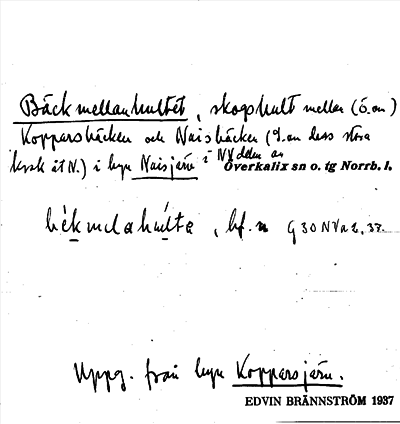 Bäckmellanhultet, skogshult mellan (ö.om)
Koppersbäcken och Naisbäcken (ö.om dess stora
krok åt N.) i byn Naisjärv i NV delen av
Överkalix sn o. tg Norrb. l.
bèkmelahúlta, bf. n
Uppg. från byn Koppersjärv.
EDVIN BRÄNNSTRÖM 1937